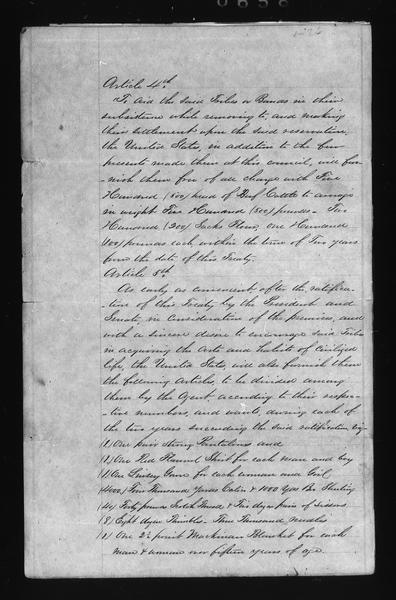 Article 4th.
To aid the said Tribes or Bands in their
subsistence while removing to, and making
their settlement upon the said reservation,
the United States, in addition to the few
presents made them at this council, will fur-
nish them free of all charge with Five
Hundred (500) head of Beef Cattle to average
in weight Five Hundred (500) pounds - Two
Hundred (200) Sacks Flour, one Hundred
(100) pounds each within the term of Two years
from the date of this Treaty.
Article 5th
As early as convenient after the ratifica-
-tion of this Treaty by the President and
Senate in Consideration of the premises, and
with a sincere desire to encourage said Tribes
in acquiring the Arts and habits of civilized
life, the United States, will also furnish them
the following Articles, to be divided among
them by the Agent according to their respec-
-tive numbers, and wants, during each of
the two years succeeding the said ratification, viz
(1) One pair strong Pantaloons and
(1) One Red Flannel Shirt for each man and boy
(1) One Linsey Gown for each woman and Girl
(4000) Four Thousand Yards Calico & 1000 Yds Bro Sheeting
(40) Forty pounds Scotch Thread & Two dozen pairs of Scissors
(8) Eight dozen Thimbles - Three Thousand needles
(1) One 2½ point Mackinaw Blanket for each
man & woman over fifteen years of age